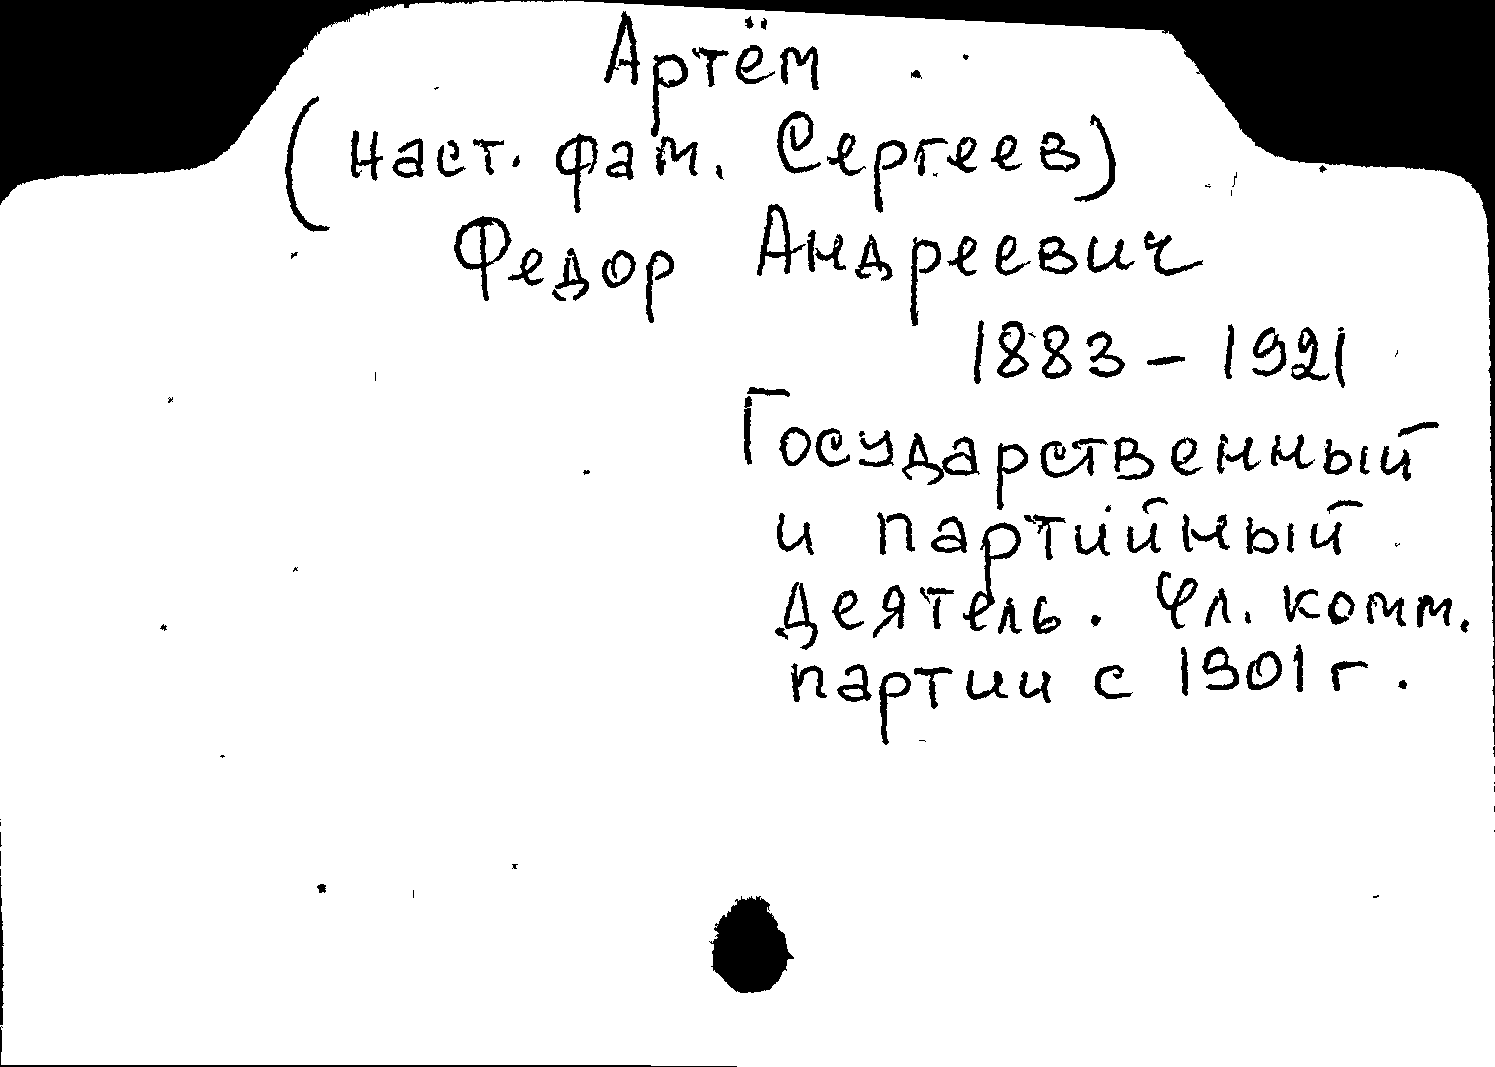 Артём
(наст. фам. Сергеев)
Федор Андреевич
1883 - 1921
Государственный
и партийный
деятель. Чл. комм.
партии с 1901 г.